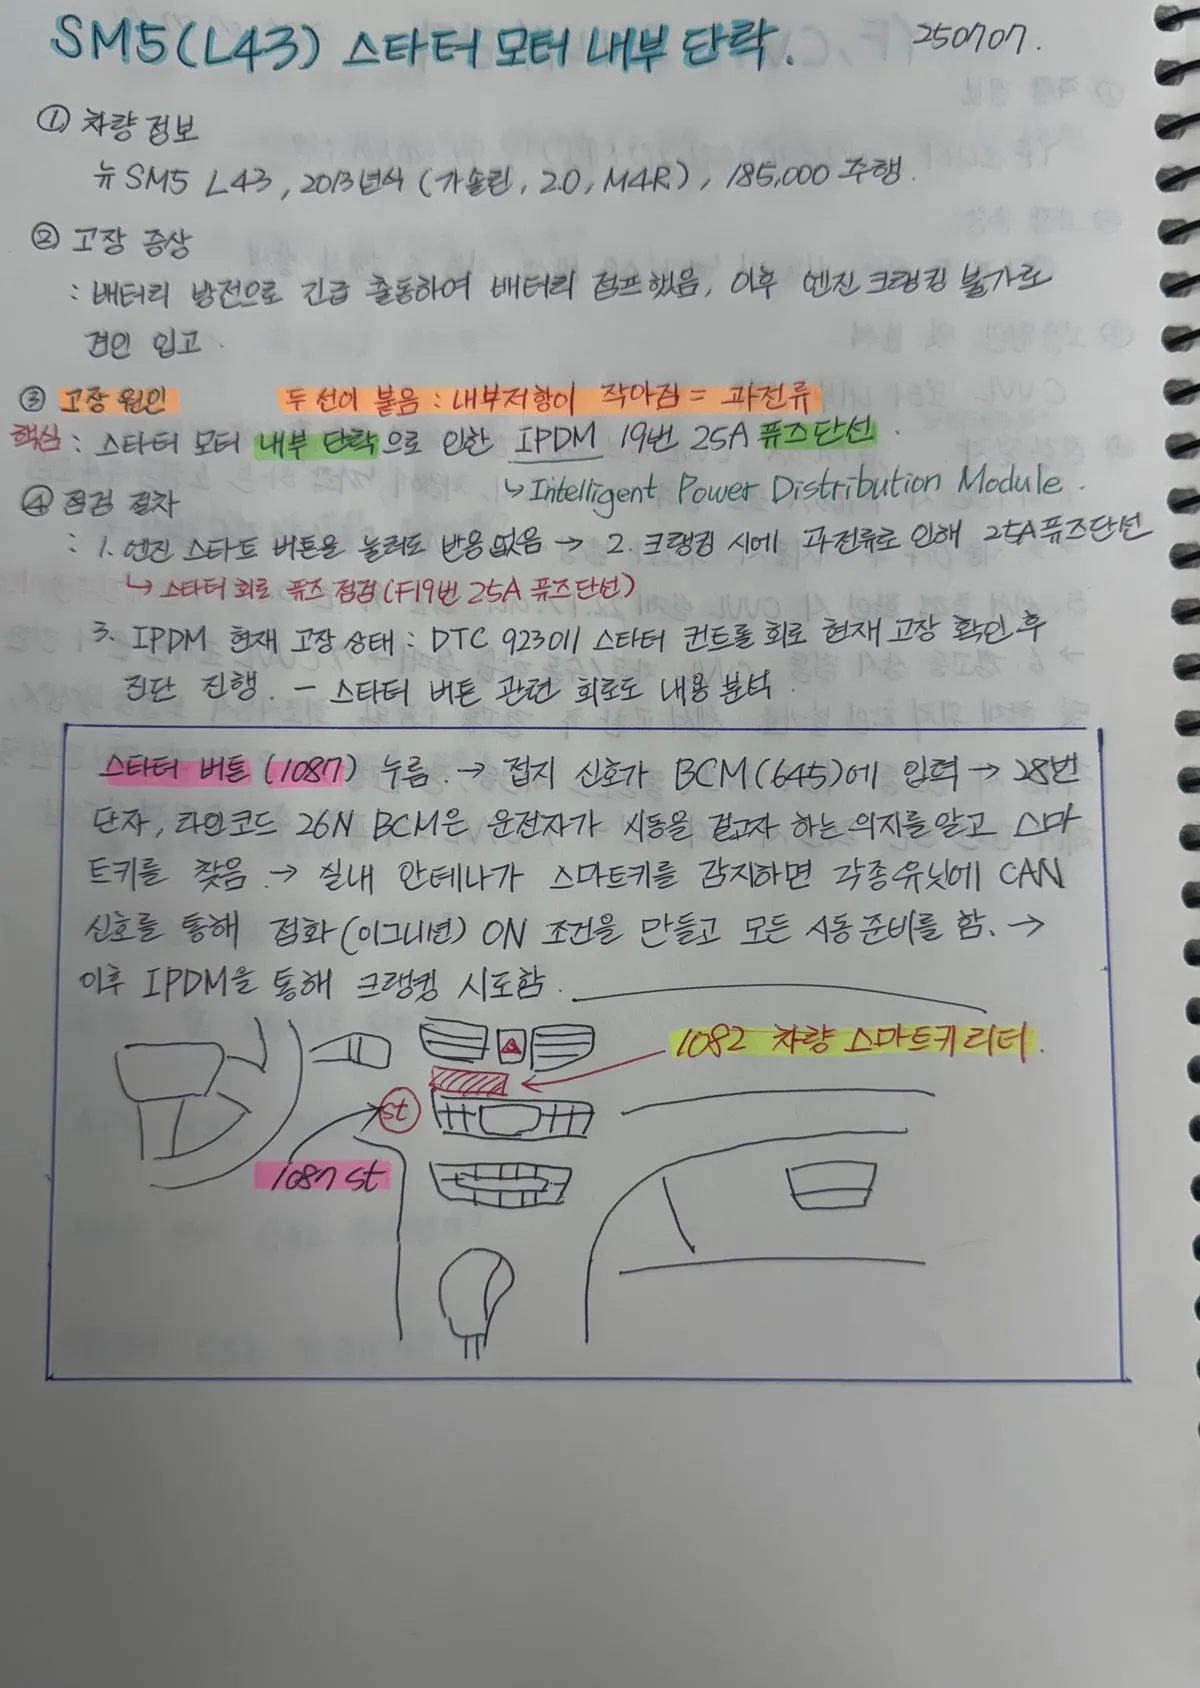 SM5(L43) 스타터 모터 내부 단락. 250707.
① 차량 정보
뉴 SM5 L43, 2013년식 (가솔린, 2.0, M4R), 185,000 주행.
② 고장 증상
: 배터리 방전으로 긴급 출동하여 배터리 점프했음, 이후 엔진 크랭킹 불가로
견인 입고.
③ 고장 원인 두 선이 붙음 : 내부저항이 작아짐 = 과전류
핵심 : 스타터 모터 내부 단락으로 인한 IPDM 19번 25A 퓨즈단선.
↳ Intelligent Power Distribution Module.
④ 점검 절차
: 1. 엔진 스타트 버튼을 눌러도 반응없음 → 2. 크랭킹 시에 과전류로 인해 25A퓨즈단선
↳ 스타터 회로 퓨즈 점검(F19번 25A 퓨즈단선)
3. IPDM 현재 고장 상태 : DTC 923011 스타터 컨트롤 회로 현재 고장 확인 후
진단 진행. - 스타터 버튼 관련 회로도 내용 분석.
스타터 버튼 (1087) 누름. → 접지 신호가 BCM(645)에 입력 → 28번
단자, 라인코드 26N BCM은 운전자가 시동을 걸고자 하는 의지를 알고 스마
트키를 찾음. → 실내 안테나가 스마트키를 감지하면 각종유닛에 CAN
신호를 통해 점화(이그니션) ON 조건을 만들고 모든 시동준비를 함. →
이후 IPDM을 통해 크랭킹 시도함.
1082 차량 스마트키 리더.
st
1087 st